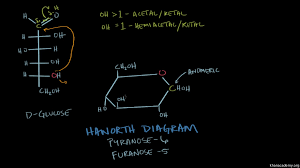 OH > 1 - ACETAL/KETAL
OH = 1 - HEMIACETAL/KETAL
H
O
H
OH
H
H
OH
CH₂OH
D-GLUCOSE
CH₂OH
O
ANOMERIC
CHOH
OH
HO
OH
HAWORTH DIAGRAM
PYRANOSE - 6
FURANOSE - 5